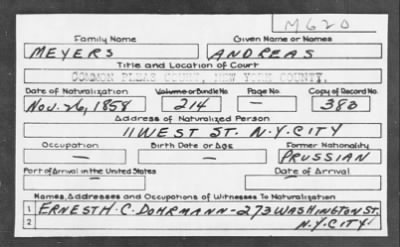 M620
Family Name Given Name or Names
MEYERS ANDREAS
Title and Location of Court
COMMON PLEAS COURT, NEW YORK COUNTY.
Date of Naturalization Volume or Bundle No. Page No. Copy of Record No.
Nov. 26, 1858 214 — 383
Address of Naturalized Person
11 WEST ST. N.Y. CITY
Occupation Birth Date or Age Former Nationality
— — PRUSSIAN
Port of Arrival in the United States Date of Arrival
— —
Names, Addresses and Occupations of Witnesses To Naturalization
1 ERNEST H. C. DOHRMANN - 273 WASHINGTON ST.
2 N.Y. CITY